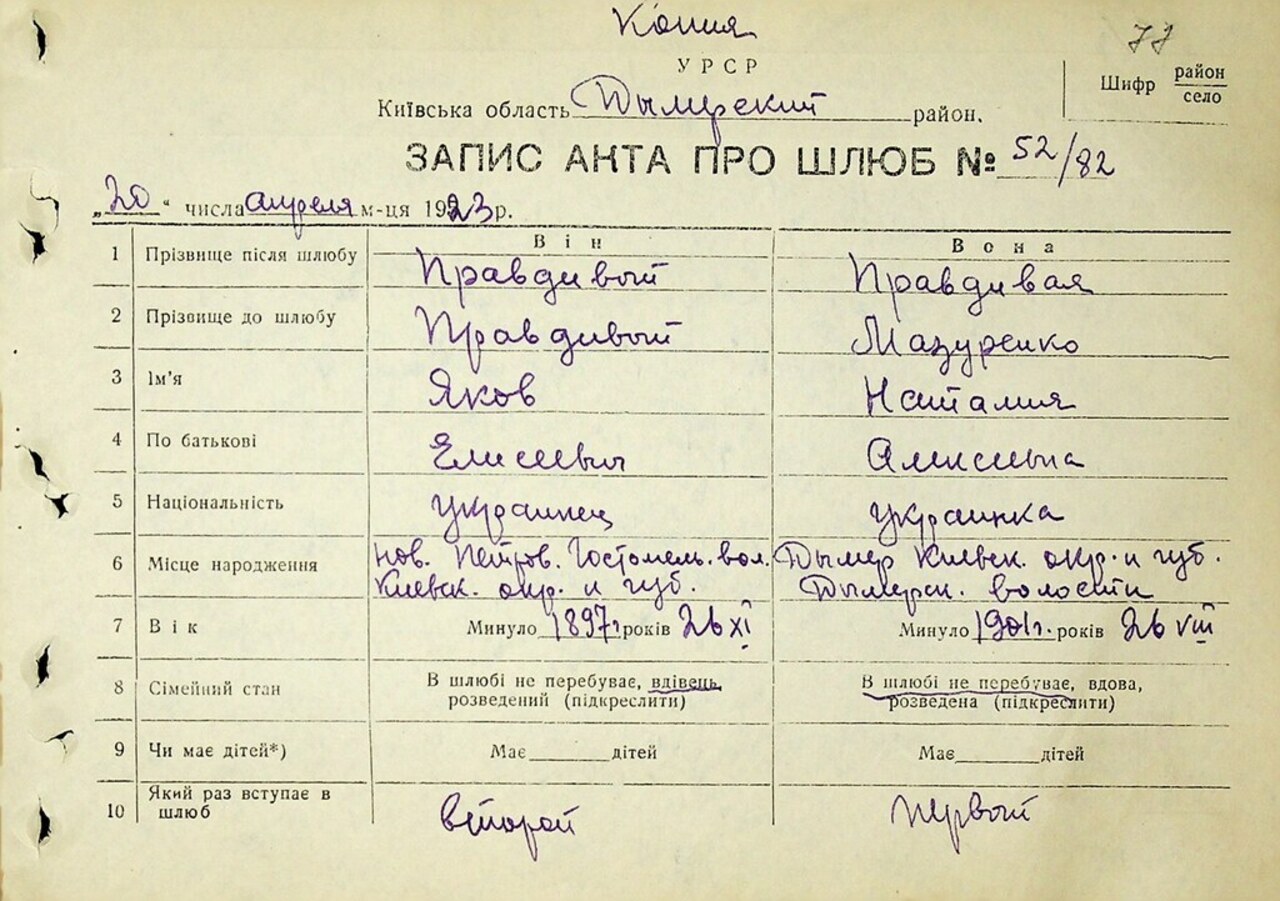 Копия
77
УРСР
Шифр район село
Київська область Дымерский район.
ЗАПИС АКТА ПРО ШЛЮБ № 52/82
„20“ числа апреля м-ця 1923 р.
Він Вона
1 Прізвище після шлюбу Правдивый Правдивая
2 Прізвище до шлюбу Правдивый Мазуренко
3 Ім’я Яков Наталия
4 По батькові Елисеевич Алексеевна
5 Національність украинец украинка
6 Місце народження Нов. Петров. Гостомель. вол. Дымер Киевск. окр. и губ.
Киевск. окр. и губ. Дымерск. волости
7 Вік Минуло 1897 г. років 26 XI Минуло 1901 г. років 26 VIII
8 Сімейний стан В шлюбі не перебуває, вдівець, В шлюбі не перебуває, вдова,
розведений (підкреслити) розведена (підкреслити)
9 Чи має дітей*) Має дітей Має дітей
10 Який раз вступає в
шлюб второй первый